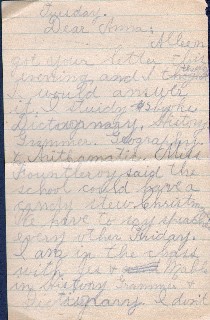 Tuesday.
Dear Anna;
got your letter this
evening and I thought
I would answer
it. I study 5 books
Dictionary, History
Grammer, Geography
& Mathamatic, Miss
said the
school could have a
candy stew christm
We have to say speach
every other Friday.
I am in the class
with Jes & Mable
in history Grammer &
Dictionarry. I don't